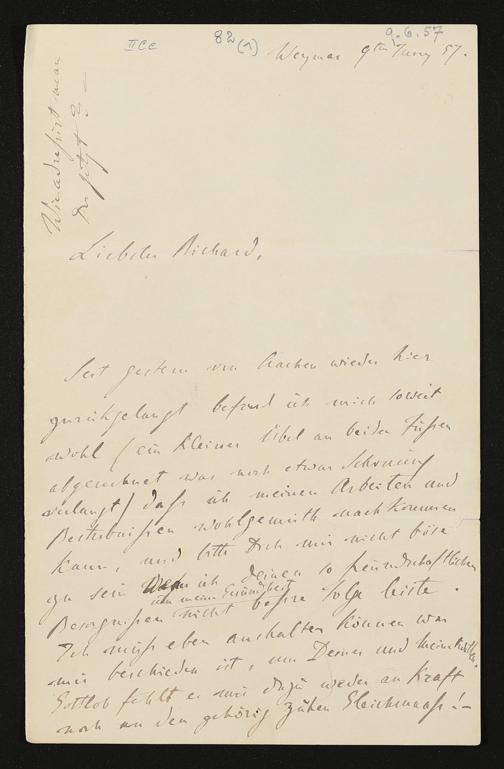 IICe 82(1) 9.6.57
Weymar 9ten Juny 57.
Wie adressirt man
Dir jetzt? —
Liebster Richard,
Seit gestern von Aachen wieder hier
zurückgelangt befand ich mich soweit
wohl (ein kleines Übel an beiden Füssen
abgerechnet was noch etwas Schonung
verlangt) dass ich meinen Arbeiten und
wohlgemuth nachkommen
kann, und bitte Dich mir nicht böse
zu sein wenn ich deinen so freundschaftlichen
Besorgnissen nicht bessre Folge leiste.
Ich muss eben aushalten können was
mir beschieden ist, um Deiner und
Gottlob fehlt es mir dazu weder an Kraft
noch an dem gehörig zähen Gleichmaass! —